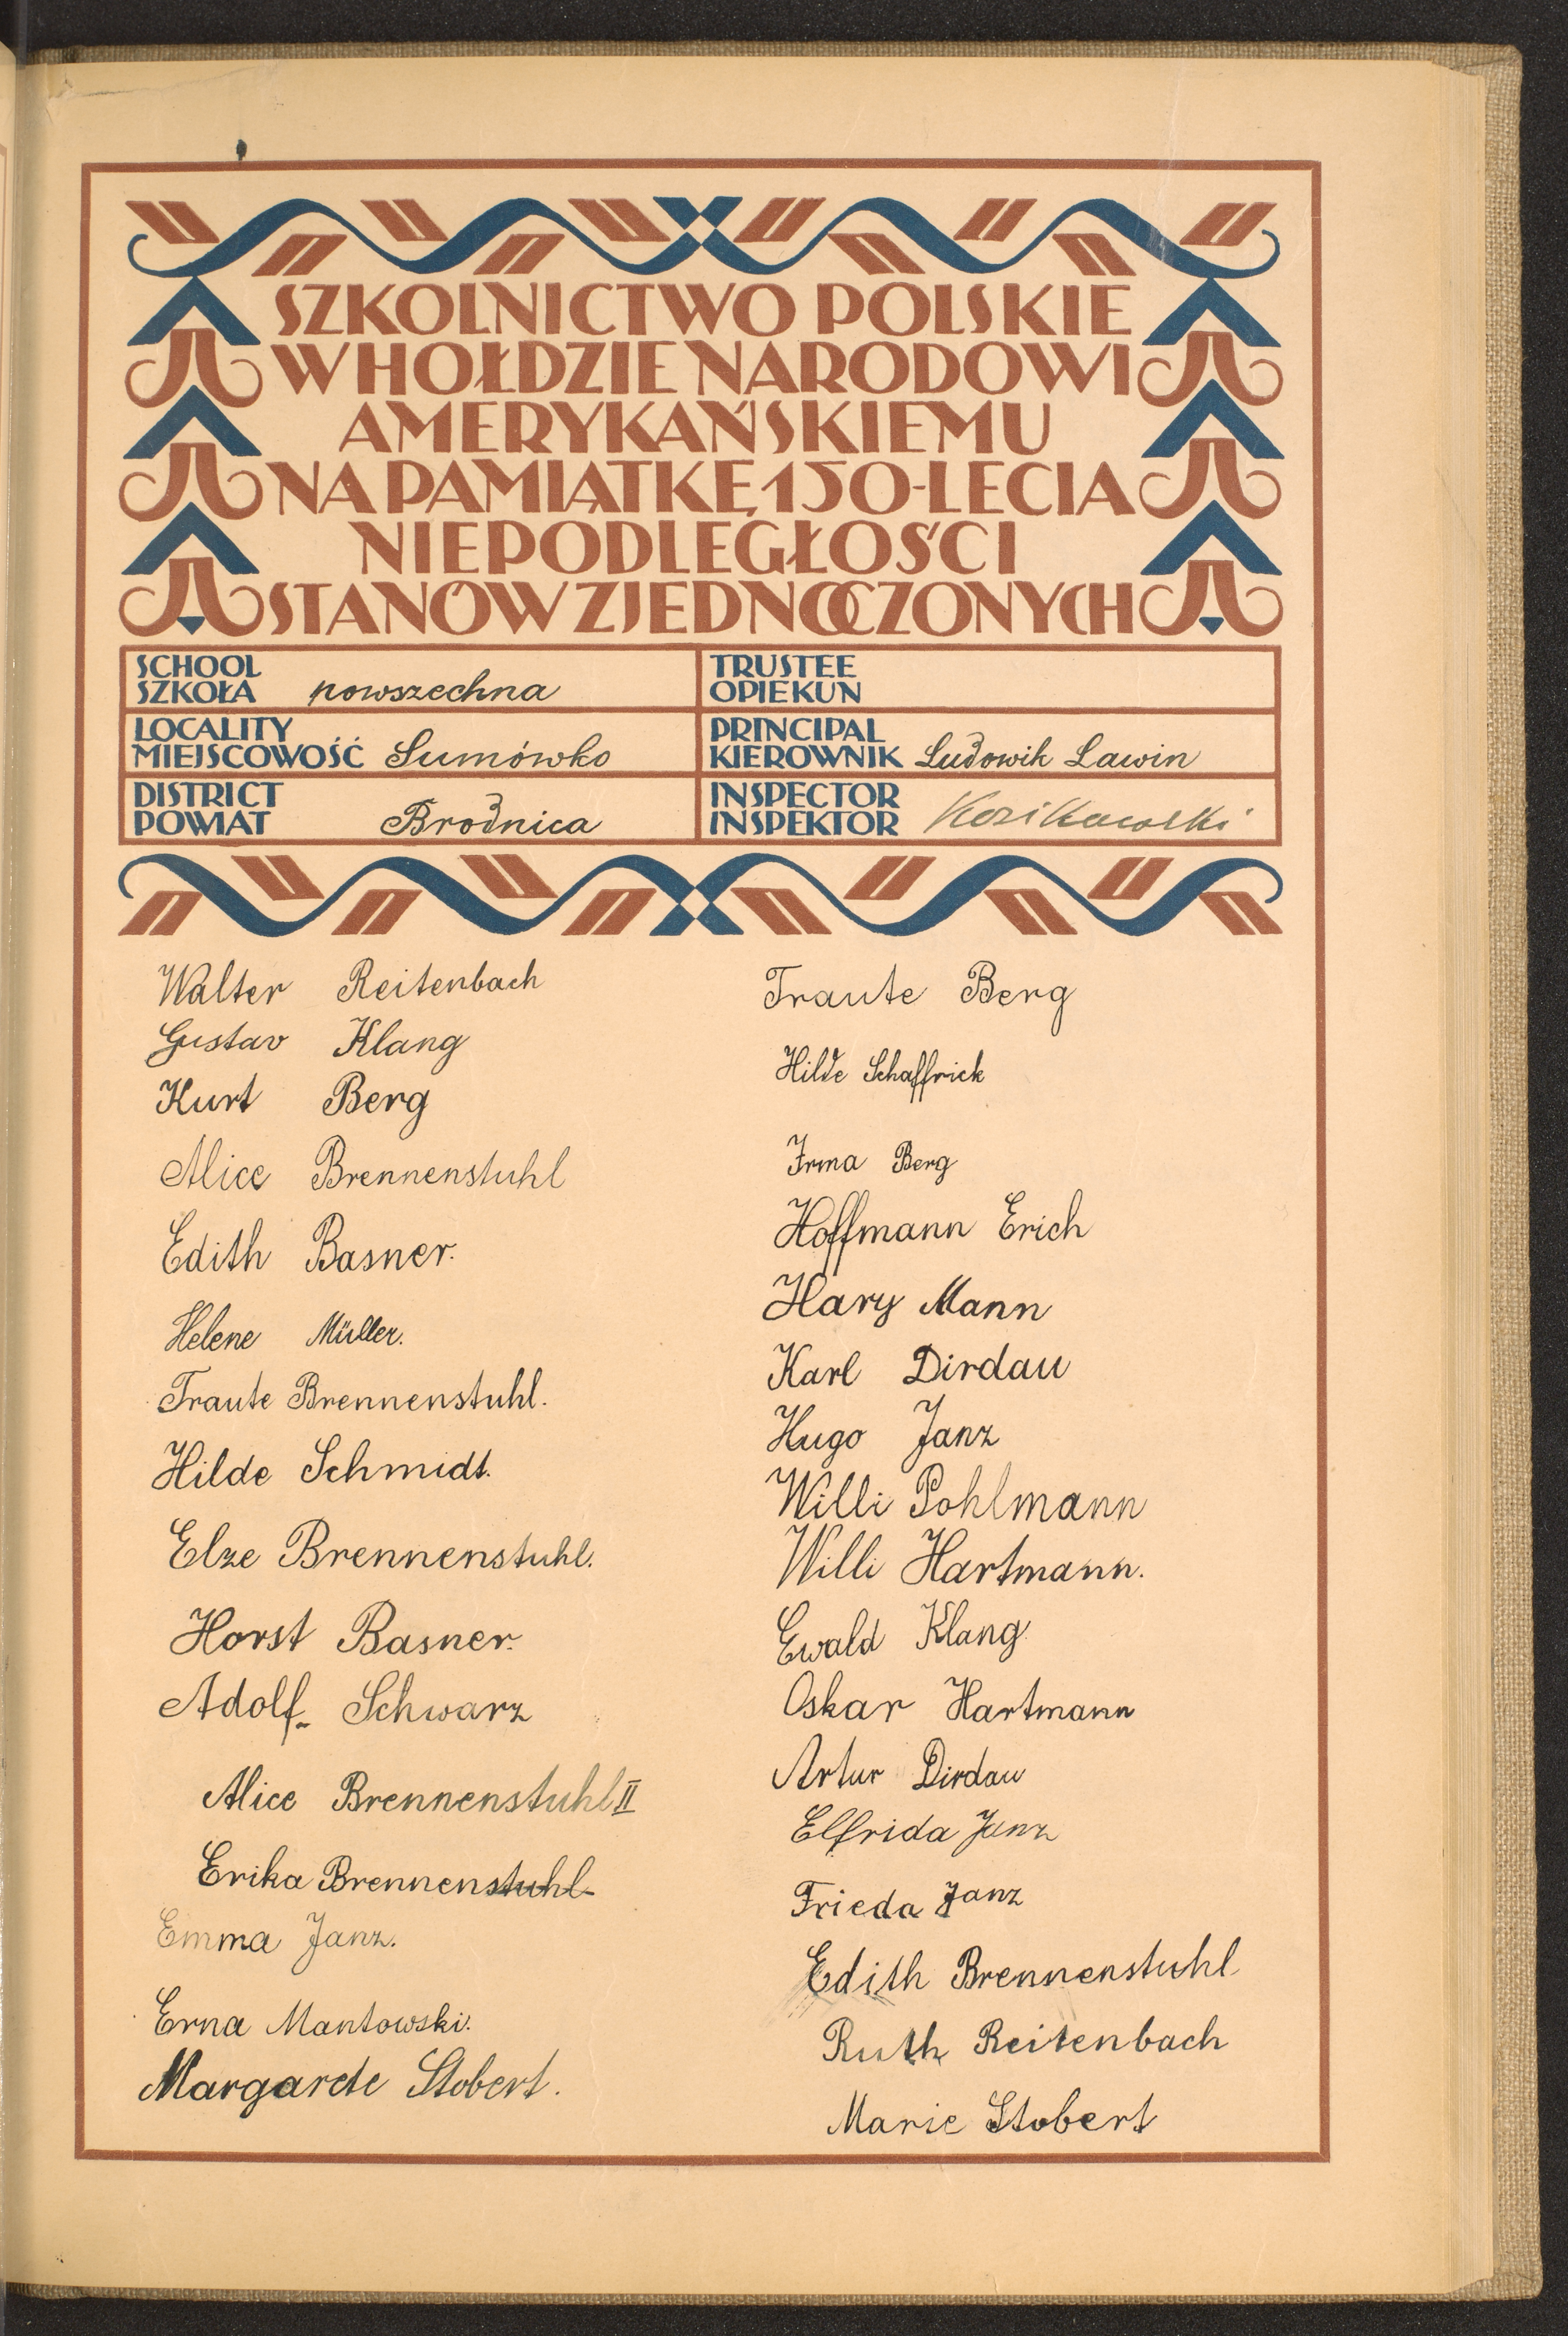 SZKOLNICTWO POLSKIE
W HOŁDZIE NARODOWI
AMERYKAŃSKIEMU
NA PAMIĄTKĘ 150-LECIA
NIEPODLEGŁOŚCI
STANÓW ZJEDNOCZONYCH
SCHOOL
SZKOŁA powszechna
LOCALITY
MIEJSCOWOŚĆ Sumówko
DISTRICT
POWIAT Brodnica
TRUSTEE
OPIEKUN
PRINCIPAL
KIEROWNIK Ludowik Lawin
INSPECTOR
INSPEKTOR Kozikowski
Walter Reitenbach
Gustav Klang
Kurt Berg
Alice Brennenstuhl
Edith Basner.
Helene Müller.
Traute Brennenstuhl.
Hilde Schmidt.
Elze Brennenstuhl.
Horst Basner.
Adolf Schwarz
Alice Brennenstuhl II
Erika Brennenstuhl
Emma Janz.
Erna Mantowski.
Margarete Stobert.
Traute Berg
Hilde Schaffrick
Irma Berg
Hoffmann Erich
Hary Mann
Karl Dirdau
Hugo Janz
Willi Pohlmann
Willi Hartmann.
Ewald Klang
Oskar Hartmann
Artur Dirdau
Elfrida Janz
Frieda Janz
Edith Brennenstuhl
Ruth Reitenbach
Marie Stobert